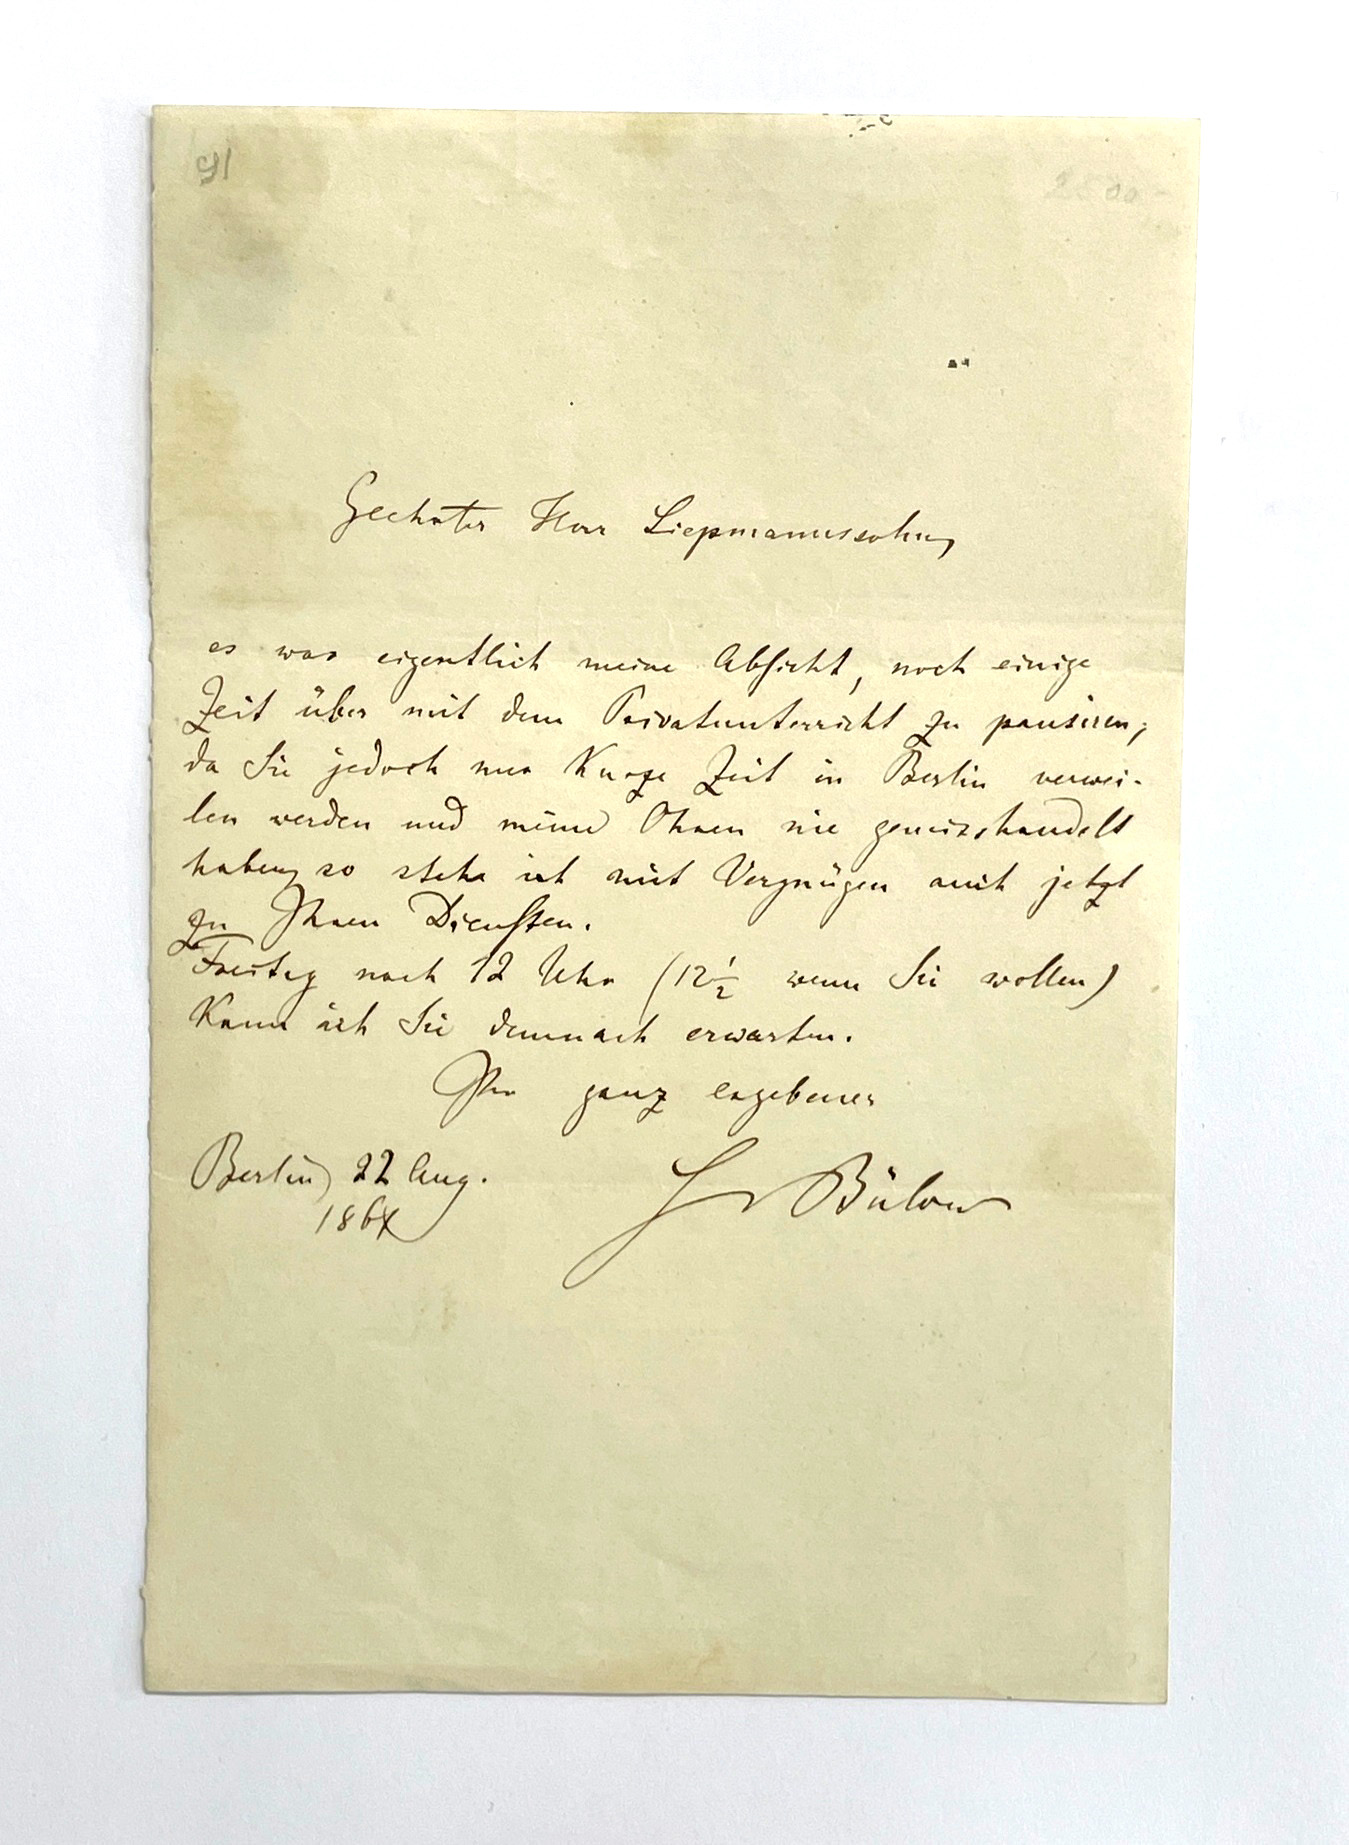 91
2500-
Geehrter Herr Liepmannssohn,
es war eigentlich meine Absicht, noch einige
Zeit über mit dem Privatunterricht zu pausiren;
da Sie jedoch nur kurze Zeit in Berlin verwei-
len werden und meine Ohren nie gemisshandelt
haben, so stehe ich mit Vergnügen auch jetzt
zu Ihren Diensten.
Freitag nach 12 Uhr (12½ wenn Sie wollen)
kann ich Sie demnach erwarten.
Ihr ganz ergebener
Berlin, 22 Aug. Hv Bülow
1864